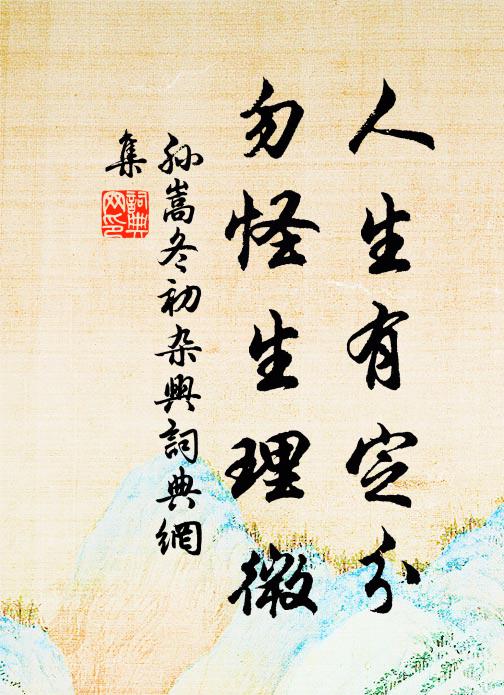 人生有定分
勿怪生理微
孙嵩冬初杂興詞典網
集
詞典
网印